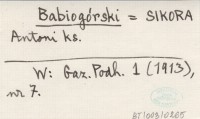 Babiogórski = SIKORA
Antoni ks.
W: Gaz. Podh. 1 (1913),
nr 7.